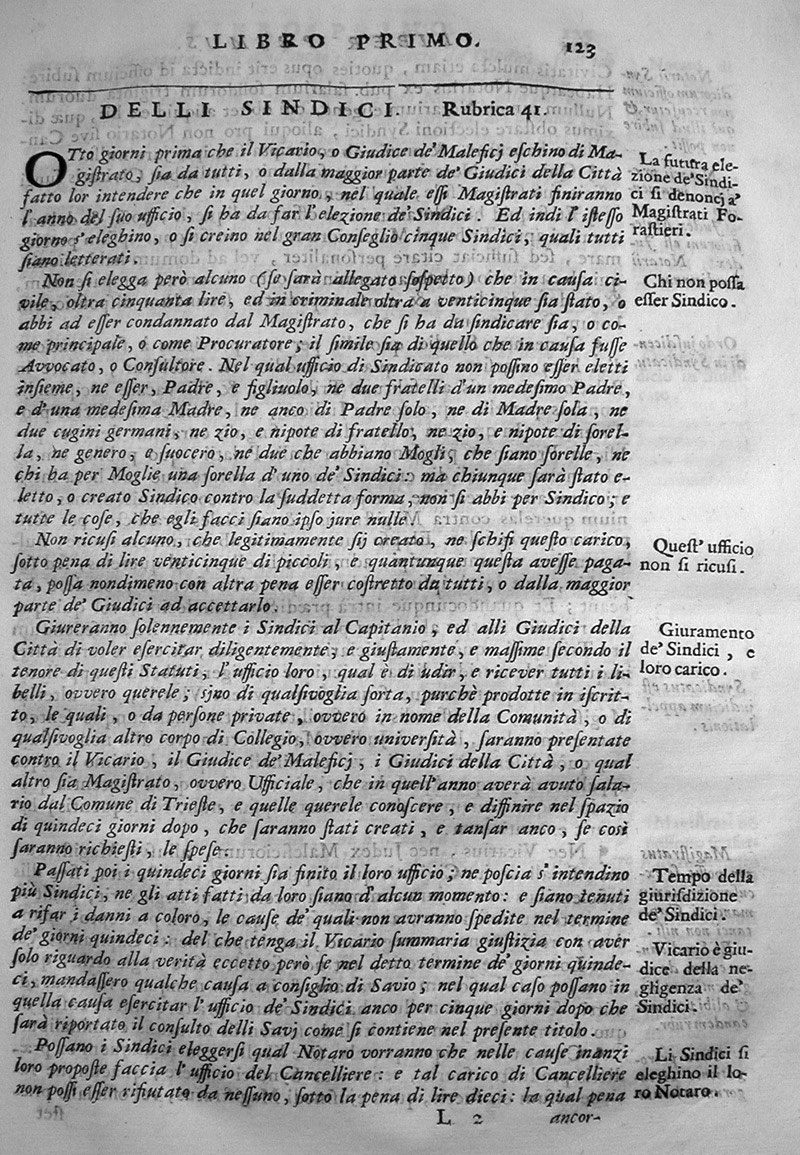 LIBRO PRIMO. 123
DELLI SINDICI. Rubrica 41.
OTto giorni prima che il Vicario, o Giudice de' Maleficj eſchino di Ma-
giſtrato, ſia da tutti, o dalla maggior parte de' Giudici della Città
fatto lor intendere che in quel giorno, nel quale eſſi Magiſtrati finiranno
l' anno del ſuo ufficio, ſi ha da far l' elezione de' Sindici. Ed indi l' iſteſſo
giorno s' eleghino, o ſi creino nel gran Conſeglio cinque Sindici, quali tutti
ſiano letterati.
La futura ele-
zione de' Sindi-
ci ſi denoncj a'
Magiſtrati Fo-
raſtieri.
Non ſi elegga però alcuno (ſe ſarà allegato ſoſpetto) che in cauſa ci-
vile, oltra cinquanta lire, ed in criminale oltra a venticinque ſia ſtato, o
abbi ad eſſer condannato dal Magiſtrato, che ſi ha da ſindicare ſia, o co-
me principale, o come Procuratore; il ſimile ſia di quello che in cauſa fuſſe
Avvocato, o Conſultore. Nel qual ufficio di Sindicato non poſſino eſſer eletti
inſieme, ne eſſer, Padre, e figliuolo, ne due fratelli d' un medeſimo Padre,
e d' una medeſima Madre, ne anco di Padre ſolo, ne di Madre ſola, ne
due cugini germani, ne zio, e nipote di fratello, ne zio, e nipote di ſorel-
la, ne genero, e ſuocero, ne due che abbiano Mogli, che ſiano ſorelle, ne
chi ha per Moglie una ſorella d' uno de' Sindici: ma chiunque ſarà ſtato e-
letto, o creato Sindico contro la ſuddetta forma, non ſi abbi per Sindico; e
tutte le coſe, che egli facci ſiano ipſo jure nulle.
Chi non poſſa
eſſer Sindico.
Non ricuſi alcuno, che legitimamente ſij creato, ne ſchifi queſto carico,
ſotto pena di lire venticinque di piccoli, e quantunque queſta aveſſe paga-
ta, poſſa nondimeno con altra pena eſſer coſtretto da tutti, o dalla maggior
parte de' Giudici ad accettarlo.
Queſt' ufficio
non ſi ricuſi.
Giureranno ſolennemente i Sindici al Capitanio, ed alli Giudici della
Città di voler eſercitar diligentemente, e giuſtamente, e maſſime ſecondo il
tenore di queſti Statuti, l' ufficio loro, qual è di udir, e ricever tutti i li-
belli, ovvero querele; ſino di qualſivoglia ſorta, purchè prodotte in iſcrit-
to, le quali, o da perſone private, ovvero in nome della Comunità, o di
qualſivoglia altro corpo di Collegio, ovvero univerſità, ſaranno preſentate
contro il Vicario, il Giudice de' Maleficj, i Giudici della Città, o qual
altro ſia Magiſtrato, ovvero Ufficiale, che in quell' anno averà avuto ſala-
rio dal Comune di Trieſte, e quelle querele conoſcere, e diffinire nel ſpazio
di quindeci giorni dopo, che ſaranno ſtati creati, e tanſar anco, ſe così
ſaranno richieſti, le ſpeſe.
Giuramento
de' Sindici, e
loro carico.
Paſſati poi i quindeci giorni ſia finito il loro ufficio; ne poſcia s' intendino
più Sindici, ne gli atti fatti da loro ſiano d' alcun momento: e ſiano tenuti
a rifar i danni a coloro, le cauſe de' quali non avranno ſpedite nel termine
de' giorni quindeci: del che tenga il Vicario ſummaria giuſtizia con aver
ſolo riguardo alla verità eccetto però ſe nel detto termine de' giorni quinde-
ci, mandaſſero qualche cauſa a conſiglio di Savio; nel qual caſo poſſano in
quella cauſa eſercitar l' ufficio de' Sindici anco per cinque giorni dopo che
ſarà riportato il conſulto delli Savj come ſi contiene nel preſente titolo.
Tempo della
giuriſdizione
de' Sindici.
Vicario è giu-
dice della ne-
gligenza de'
Sindici.
Poſſano i Sindici eleggerſi qual Notaro vorranno che nelle cauſe inanzi
loro propoſte faccia l' ufficio del Cancelliere: e tal carico di Cancelliere
non poſſi eſſer rifiutato da neſſuno, ſotto la pena di lire dieci: la qual pena
Li Sindici ſi
eleghino il lo-
ro Notaro.
L 2 ancor-